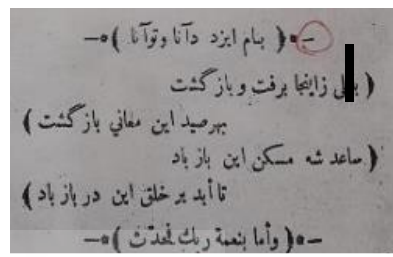 ﴿ بنام ایزد دآنا وتوآنا ﴾
( زاینجا برفت و باز گشت
بهرصید این معاني باز گشت )
( ساعد شه مسکن این باز باد
تا أبد بر خلق این در باز باد )
( وأما بنعمة ربك فحدّث )